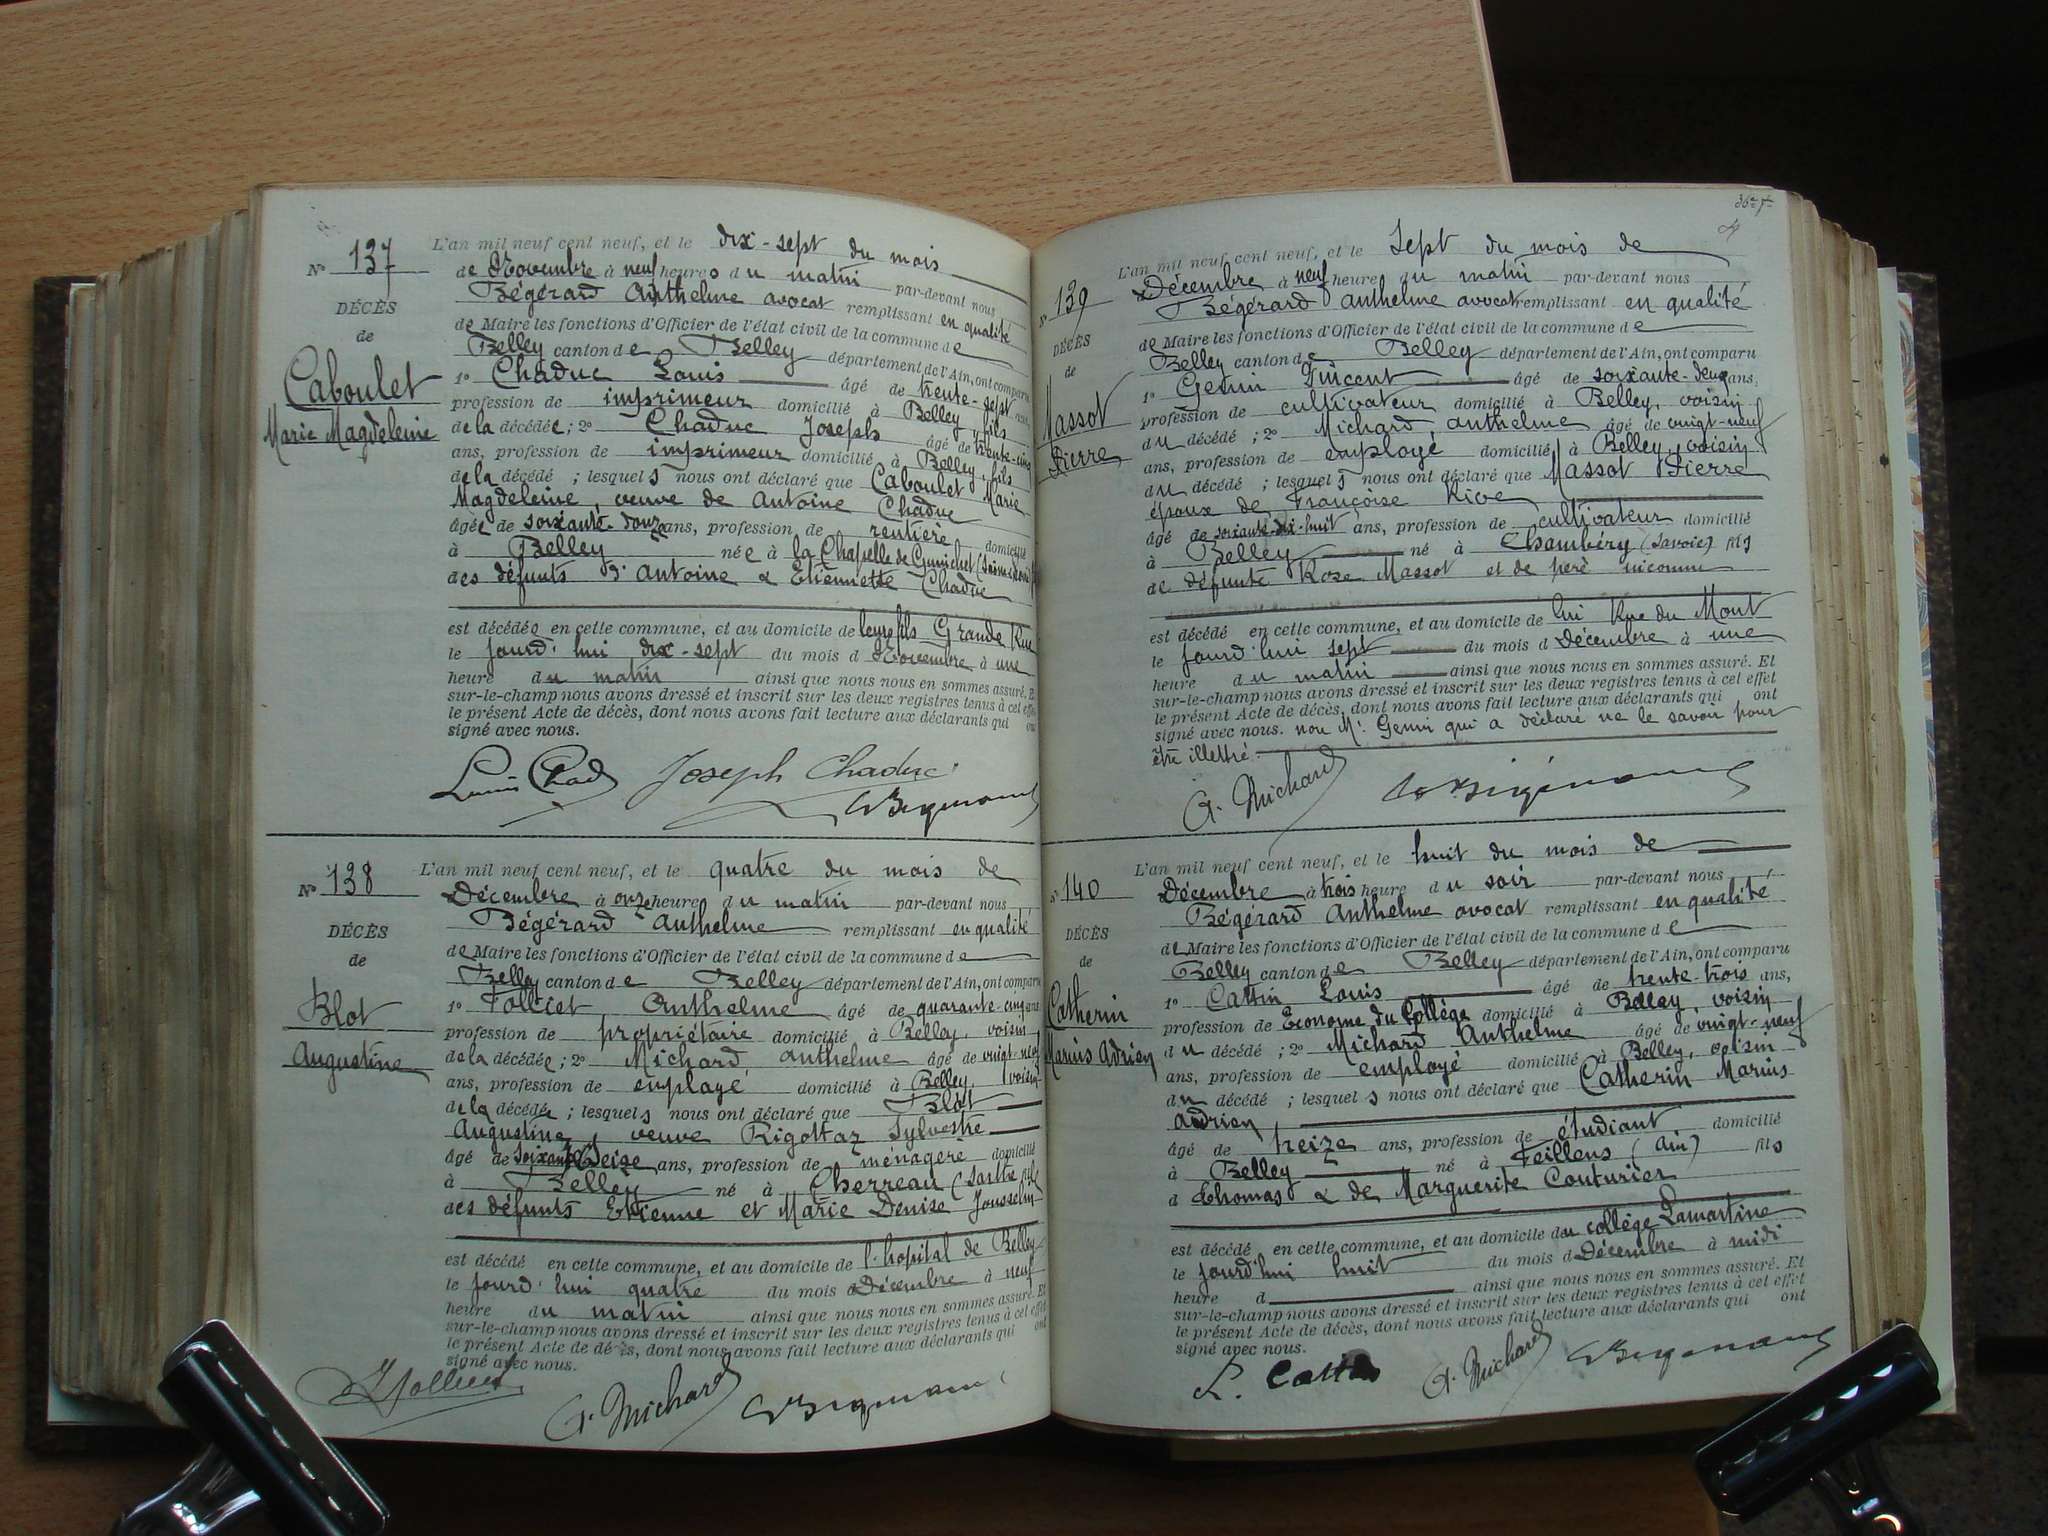 Nº 137
DÉCÈS
de
Caboulet
Marie Magdeleine
L'an mil neuf cent neuf, et le dix-sept du mois
de Novembre à neuf heures du matin par-devant nous
Bégérard Anthelme avocat remplissant en qualité
de Maire les fonctions d'Officier de l'état civil de la commune de
Belley canton de Belley département de l'Ain, ont comparu
1º Chaduc Louis âgé de trente-sept ans,
profession de imprimeur domicilié à Belley, fils
de la décédée; 2º Chaduc Joseph âgé de trente-cinq
ans, profession de imprimeur domicilié à Belley, fils
de la décédé; lesquels nous ont déclaré que Caboulet Marie
Magdeleine, veuve de Antoine Chaduc
âgée de soixante-douze ans, profession de rentière domicilié
à Belley née à la Chapelle de Guinchet (Saône & Loire)
des défunts Antoine & Etiennette Chaduc
est décédée en cette commune, et au domicile de leurs fils Grande Rue
le jourd'hui dix-sept du mois d Novembre à une
heure du matin ainsi que nous nous en sommes assuré. Et
sur-le-champ nous avons dressé et inscrit sur les deux registres tenus à cet effet
le présent Acte de décès, dont nous avons fait lecture aux déclarants qui ont
signé avec nous.
Louis Chad Joseph Chaduc
Nº 138
DÉCÈS
de
Blot
Augustine
L'an mil neuf cent neuf, et le quatre du mois de
Décembre à onze heures du matin par-devant nous
Bégérard Anthelme remplissant en qualité
de Maire les fonctions d'Officier de l'état civil de la commune de
Belley canton de Belley département de l'Ain, ont comparu
1º Folliet Anthelme âgé de quarante-cinq ans
profession de propriétaire domicilié à Belley, voisin
de la décédée; 2º Michard Anthelme âgé de vingt-neuf
ans, profession de employé domicilié à Belley, voisin
de la décédée; lesquels nous ont déclaré que Blot
Augustine, veuve Rigottaz Sylvestre
âgé de soixante-seize ans, profession de ménagère domicilié
à Belley né à Cherreau (Sarthe) fils
des défunts Etienne et Marie Denise Jousselin
est décédé en cette commune, et au domicile de l'hopital de Belley
le jourd'hui quatre du mois d Décembre à neuf
heure du matin ainsi que nous nous en sommes assuré. Et
sur-le-champ nous avons dressé et inscrit sur les deux registres tenus à cet effet
le présent Acte de décès, dont nous avons fait lecture aux déclarants qui ont
signé avec nous.
A. Michard
4
Nº 139
DÉCÈS
de
Massot
Pierre
L'an mil neuf cent neuf, et le sept du mois de
Décembre à neuf heures du matin par-devant nous
Bégérard Anthelme avocat remplissant en qualité
de Maire les fonctions d'Officier de l'état civil de la commune de
Belley canton de Belley département de l'Ain, ont comparu
1º Genin Vincent âgé de soixante-deux ans,
profession de cultivateur domicilié à Belley, voisin
du décédé; 2º Michard, Anthelme âgé de vingt-neuf
ans, profession de employé domicilié à Belley, voisin
du décédé; lesquels nous ont déclaré que Massot Pierre
époux de Françoise Rive
âgé de soixante-dix-huit ans, profession de cultivateur domicilié
à Belley né à Chambéry (Savoie) fils
de défunte Rose Massot et de père inconnu
est décédé en cette commune, et au domicile de lui Rue du Mont
le jourd'hui sept du mois d Décembre à une
heure du matin ainsi que nous nous en sommes assuré. Et
sur-le-champ nous avons dressé et inscrit sur les deux registres tenus à cet effet
le présent Acte de décès, dont nous avons fait lecture aux déclarants qui ont
signé avec nous. non Mr. Genin qui a déclaré ne le savoir pour
être illettré.
A. Michard
Nº 140
DÉCÈS
de
Catherin
Marius Adrien
L'an mil neuf cent neuf, et le huit du mois de
Décembre à trois heure du soir par-devant nous
Bégérard Anthelme avocat remplissant en qualité
de Maire les fonctions d'Officier de l'état civil de la commune de
Belley canton de Belley département de l'Ain, ont comparu
1º Cattin Louis âgé de trente-trois ans,
profession de Econome du Collège domicilié à Belley, voisin
du décédé; 2º Michard Anthelme âgé de vingt-neuf
ans, profession de employé domicilié à Belley, voisin
du décédé; lesquels nous ont déclaré que Catherin Marius
Adrien
âgé de treize ans, profession de étudiant domicilié
à Belley né à Feillens (Ain) fils
d Thomas & de Marguerite Couturier
est décédé en cette commune, et au domicile du collège Lamartine
le jourd'hui huit du mois d Décembre à midi
heure d ainsi que nous nous en sommes assuré. Et
sur-le-champ nous avons dressé et inscrit sur les deux registres tenus à cet effet
le présent Acte de décès, dont nous avons fait lecture aux déclarants qui ont
signé avec nous.
L. Cattin A. Michard